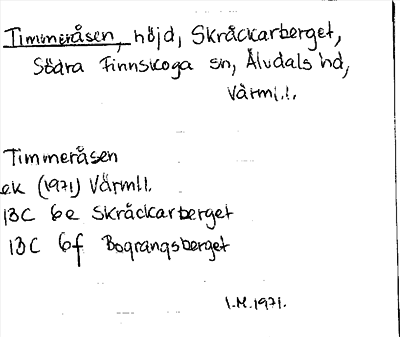 Timmeråsen, höjd, Skråckarberget,
Södra Finnskoga sn, Älvdals hd,
Värml.
Timmeråsen
ek (1971) Värmll.
13C 6e Skråckarberget
13C 6f Bograngsberget
I.M.1971.